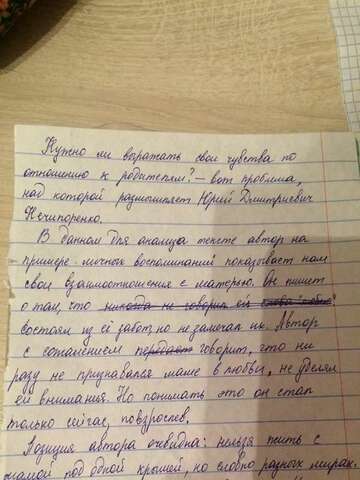 Нужно ли выражать свои чувства по
отношению к родителям? – вот проблема,
над которой размышляет Юрий Дмитриевич
Нечипоренко.
В данном для анализа тексте автор на
примере личных воспоминаний показывает нам
свои взаимоотношения с матерью. Он пишет
о том, что никогда не говорил ей слова "люблю"
состоял из её забот, но не замечал их. Автор
с сожалением передает говорит, что ни
разу не признавался маме в любви, не уделял
ей внимания. Но понимать это он стал
только сейчас, повзрослев.
Позиция автора очевидна: нельзя жить с
мамой под одной крышей, но словно в разных мирах.